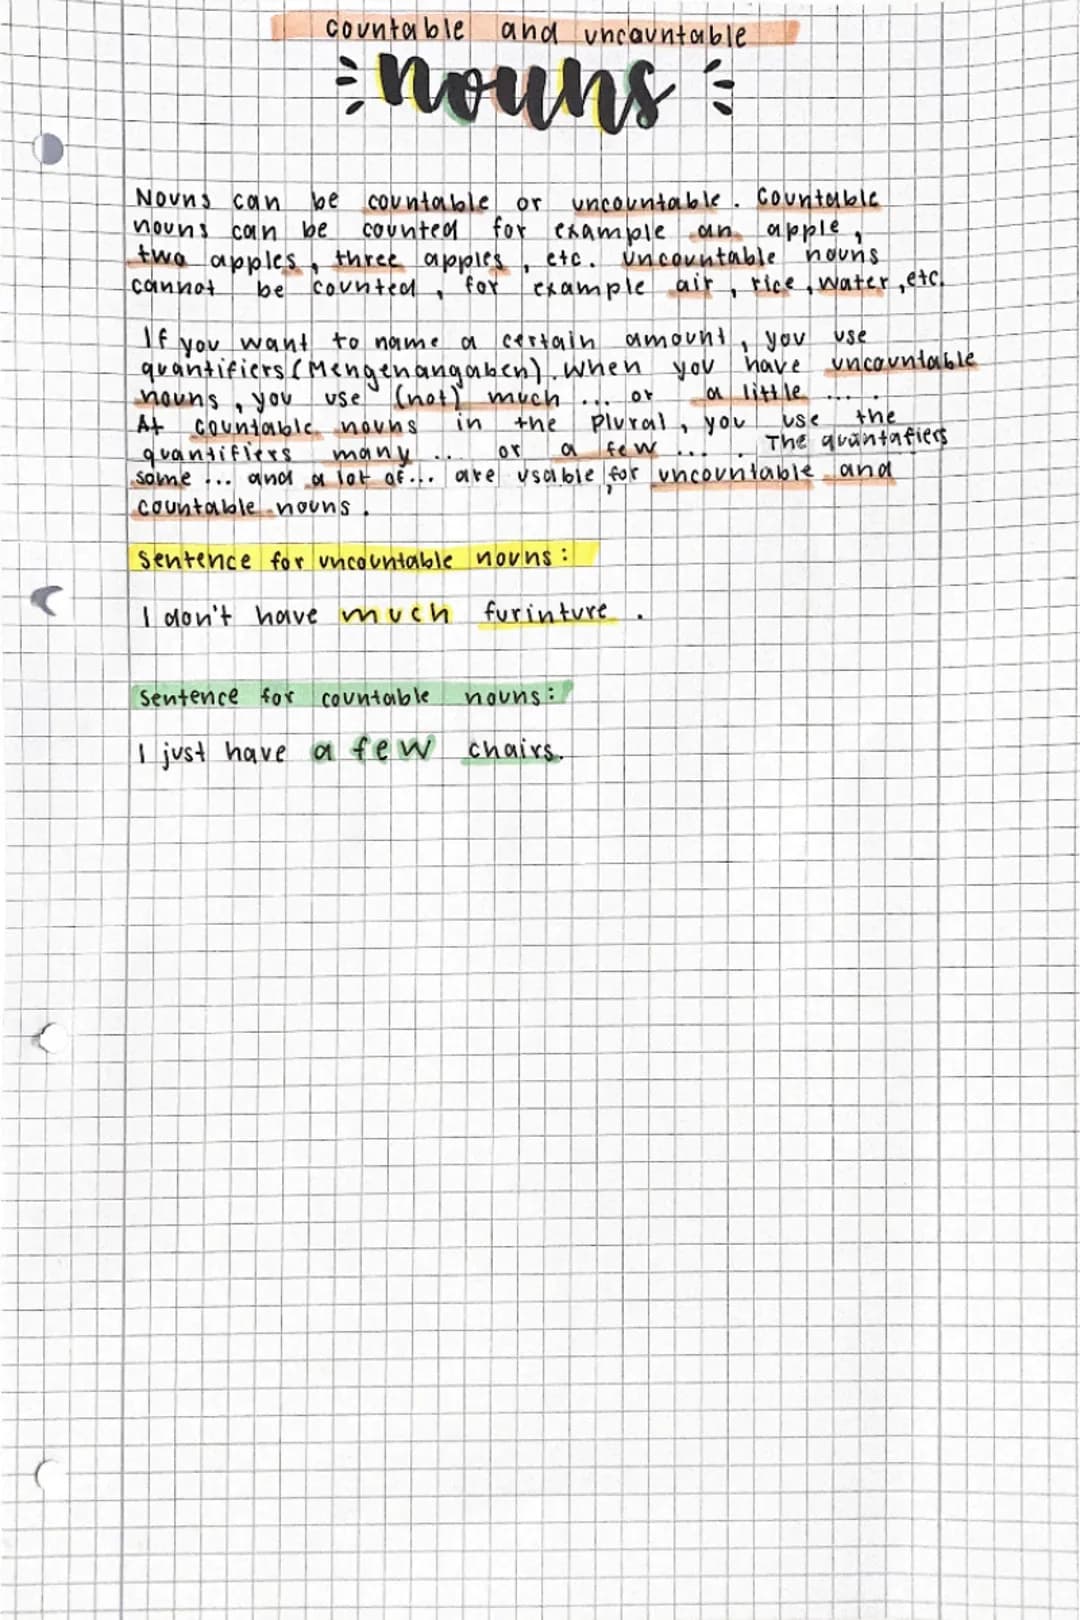 countable and uncountable
nouns
Nouns can be countable or uncountable. Countable
nouns can be counted for example an apple,
two apples, three apples, etc. Uncountable nouns
cannot be counted, for example air, rice, water, etc.
If you want to name a certain amount, you use
quantifiers (Mengenangaben). When you have uncountable
nouns, you use (not) much ... or a little ... .
At countable nouns in the plural, you use the
quantifiers many ... or a few ... . The quantafiers
some ... and a lot of ... are usable for uncountable and
countable nouns.
Sentence for uncountable nouns:
I don't have much furinture.
Sentence for countable nouns:
I just have a few chairs.